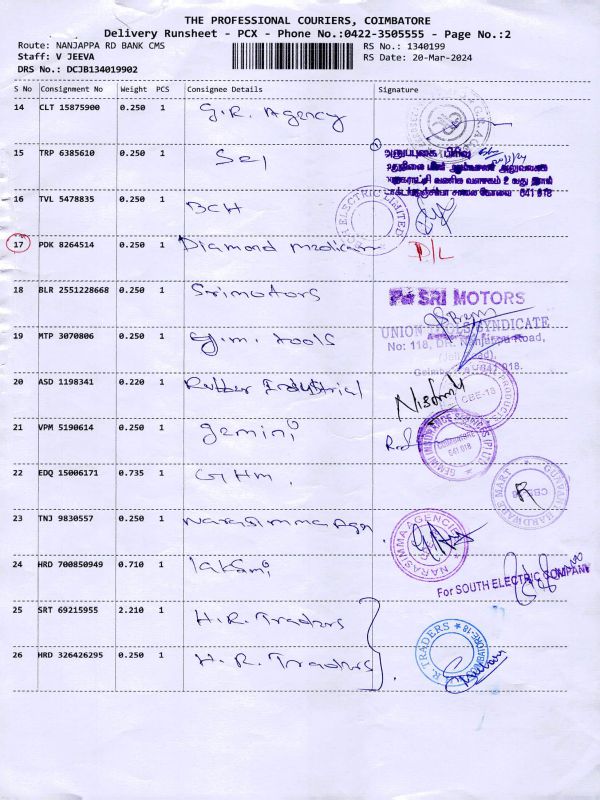 THE PROFESSIONAL COURIERS, COIMBATORE
Delivery Runsheet - PCX - Phone No.:0422-3505555 - Page No.:2
Route: NANJAPPA RD BANK CMS RS No.: 1340199
Staff: V JEEVA RS Date: 20-Mar-2024
DRS No.: DCJB134019902
S No Consignment No Weight PCS Consignee Details Signature
14 CLT 15875900 0.250 1 G.R. Agency
15 TRP 6385610 0.250 1
அனுப்புகை பிரிவு
641 018
16 TVL 5478835 0.250 1 BCH
ELECTRIC LIMITED
17 PDK 8264514 0.250 1 Diamond medicam D/L
18 BLR 2551228668 0.250 1 Srimotors
SRI MOTORS
UNION TOOLS SYNDICATE
19 MTP 3070806 0.250 1 G.i.m. tools
No: 118, DR. Nanjappa Road,
641 018.
20 ASD 1198341 0.220 1 Rubber Industrial
PRODUCTS
CBE-18
21 VPM 5190614 0.250 1 gemini
GEMINI INSURANCE
COIMBATORE
641 018
22 EDQ 15006171 0.735 1 GHM.
GUNVANT HARDWARE MART
23 TNJ 9830557 0.250 1 Narasimma Agn.
NARASIMMA AGENCIES
24 HRD 700850949 0.710 1 laksmi
For SOUTH ELECTRIC COMPANY
25 SRT 69215955 2.210 1 H.R. Traders
26 HRD 326426295 0.250 1 H.R. Traders
R. TRADERS
COIMBATORE-18